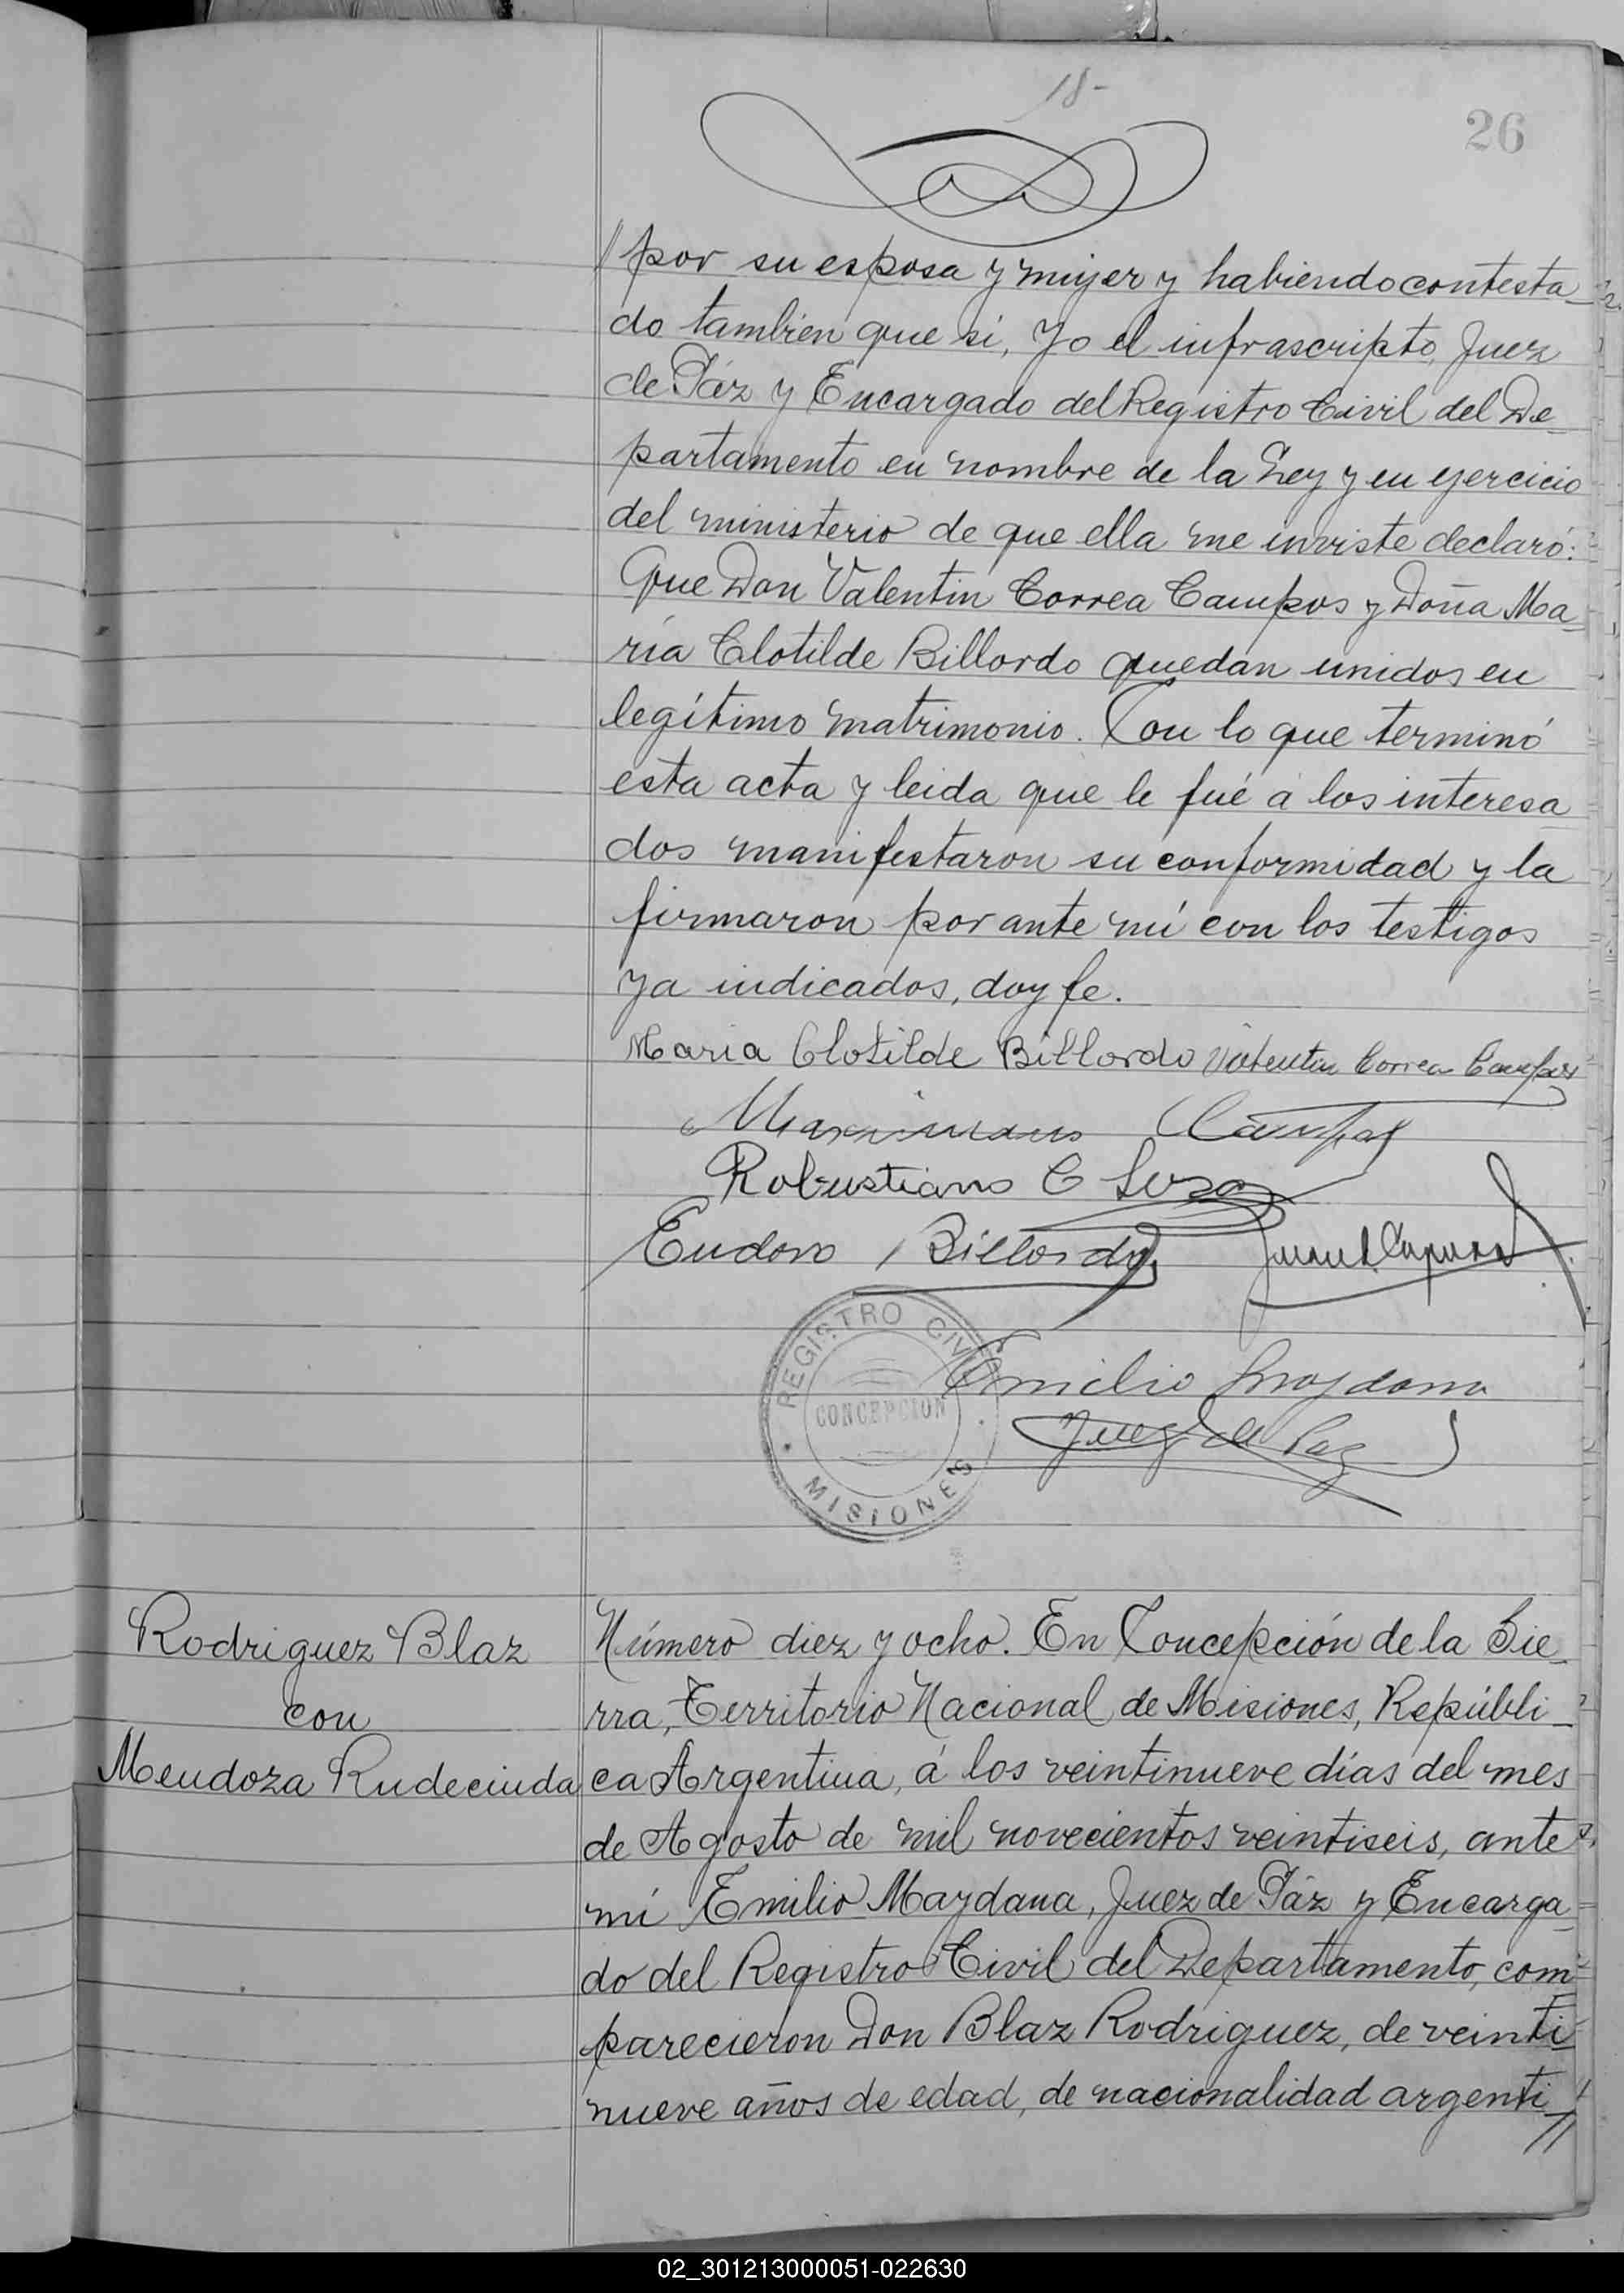 18-
26
// por su esposa y mujer y habiendo contesta_
do tambien que si, Yo el infrascripto, Juez
de Páz y Encargado del Registro Civil del De_
partamento en nombre de la Ley y en ejercicio
del ministerio de que ella me inviste declaró:
Que Don Valentin Correa Campos y Doña Ma_
ría Clotilde Billordo quedan unidos en
legítimo matrimonio. Con lo que terminó
esta acta y leida que le fué á los interesa
dos manifestaron su conformidad y la
firmaron por ante mí con los testigos
ya indicados, doy fe.
Maria Clotilde Billordo Valentin Correa Campos
Maximiano Campos
Robustiano C Sosa
Eudoro Billordo
REGISTRO CIVIL
CONCEPCION
MISIONES
Emilio Maydana
Juez de Paz
Rodriguez Blaz
con
Mendoza Rudecinda
Número diez y ocho. En Concepción de la Sie_
rra, Territorio Nacional de Misiones, Repúbli_
ca Argentina, á los veintinueve días del mes
de Agosto de mil novecientos veintiseis, ante
mí Emilio Maydana, Juez de Páz y Encarga_
do del Registro Civil del Departamento, com_
parecieron Don Blaz Rodriguez, de veinti_
nueve años de edad, de nacionalidad argenti_
//
02_301213000051-022630